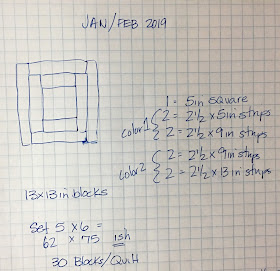 JAN/FEB 2019
1 = 5in square
color 1 { 2 = 2½ x 5in strips
2 = 2½ x 9in strips
color 2 { 2 = 2½ x 9in strips
2 = 2½ x 13in strips
13x13in blocks
Set 5 x 6 =
62 x 75 ish
30 Blocks/Quilt